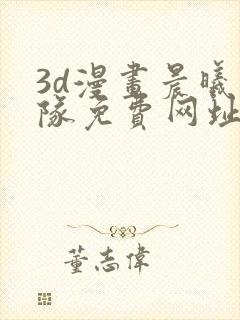 3d漫畫晨曦
隊免費网址
董志偉